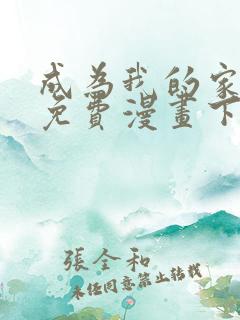 成為我的家
免費漫畫下
張全和
未经同意禁止转载